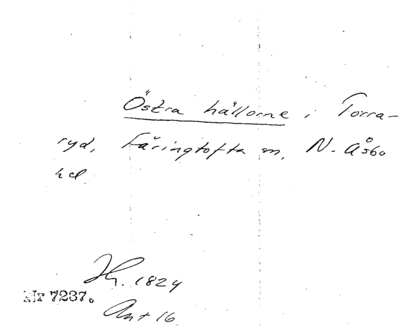 Östra hällorne i Torra-
ryd, Färingtofta sn, N. Åsbo
hd
H. 1824
Nr 7237.
Ant 16